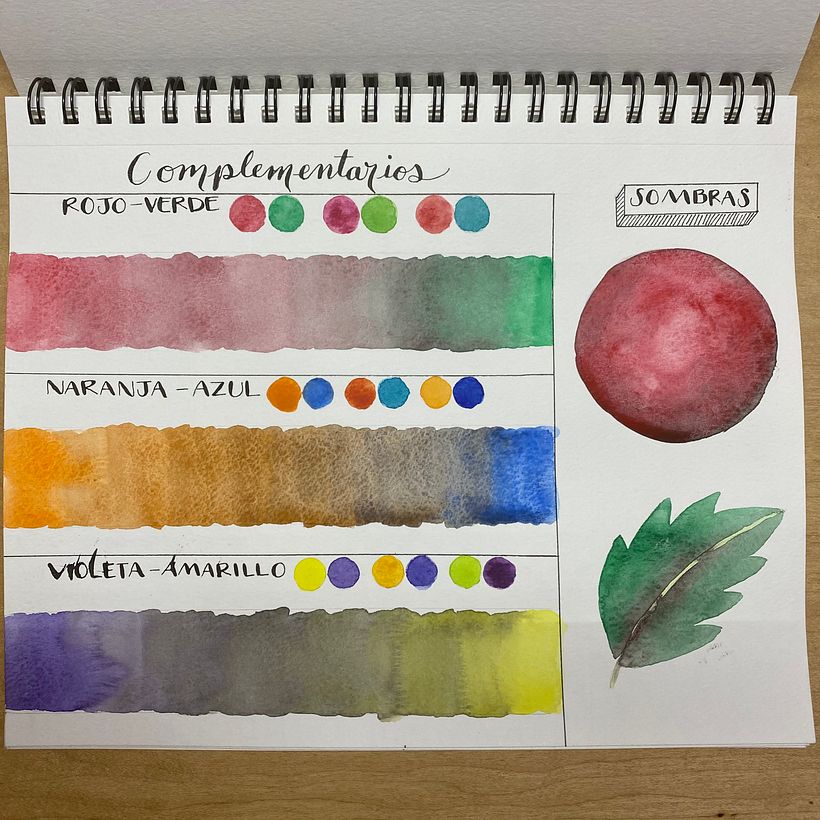 Complementarios
ROJO-VERDE
SOMBRAS
NARANJA-AZUL
VIOLETA-AMARILLO